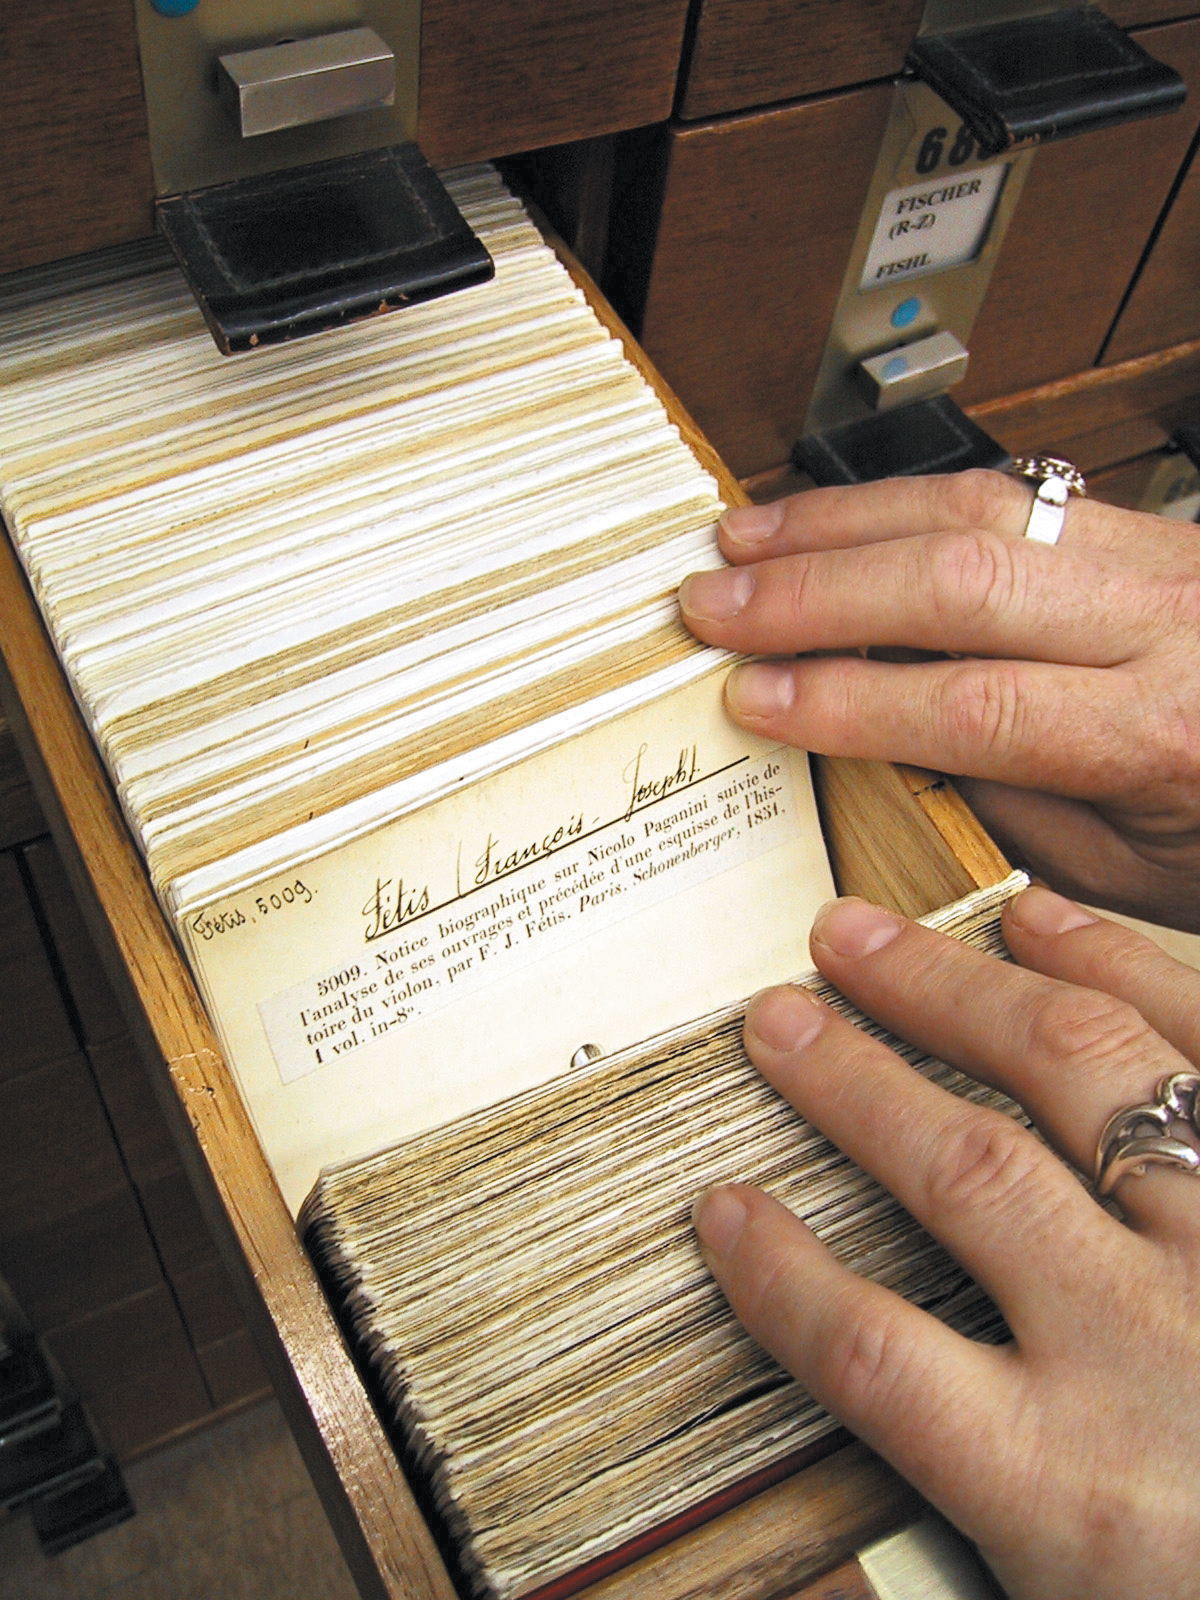 FISCHER
(R-Z)
FISHL
Fétis, 5009.
Fétis (François-Joseph)
5009. Notice biographique sur Nicolo Paganini suivie de
l'analyse de ses ouvrages et précédée d'une esquisse de l'his-
toire du violon, par F. J. Fétis. Paris, Schonenberger, 1851,
1 vol. in-8º.